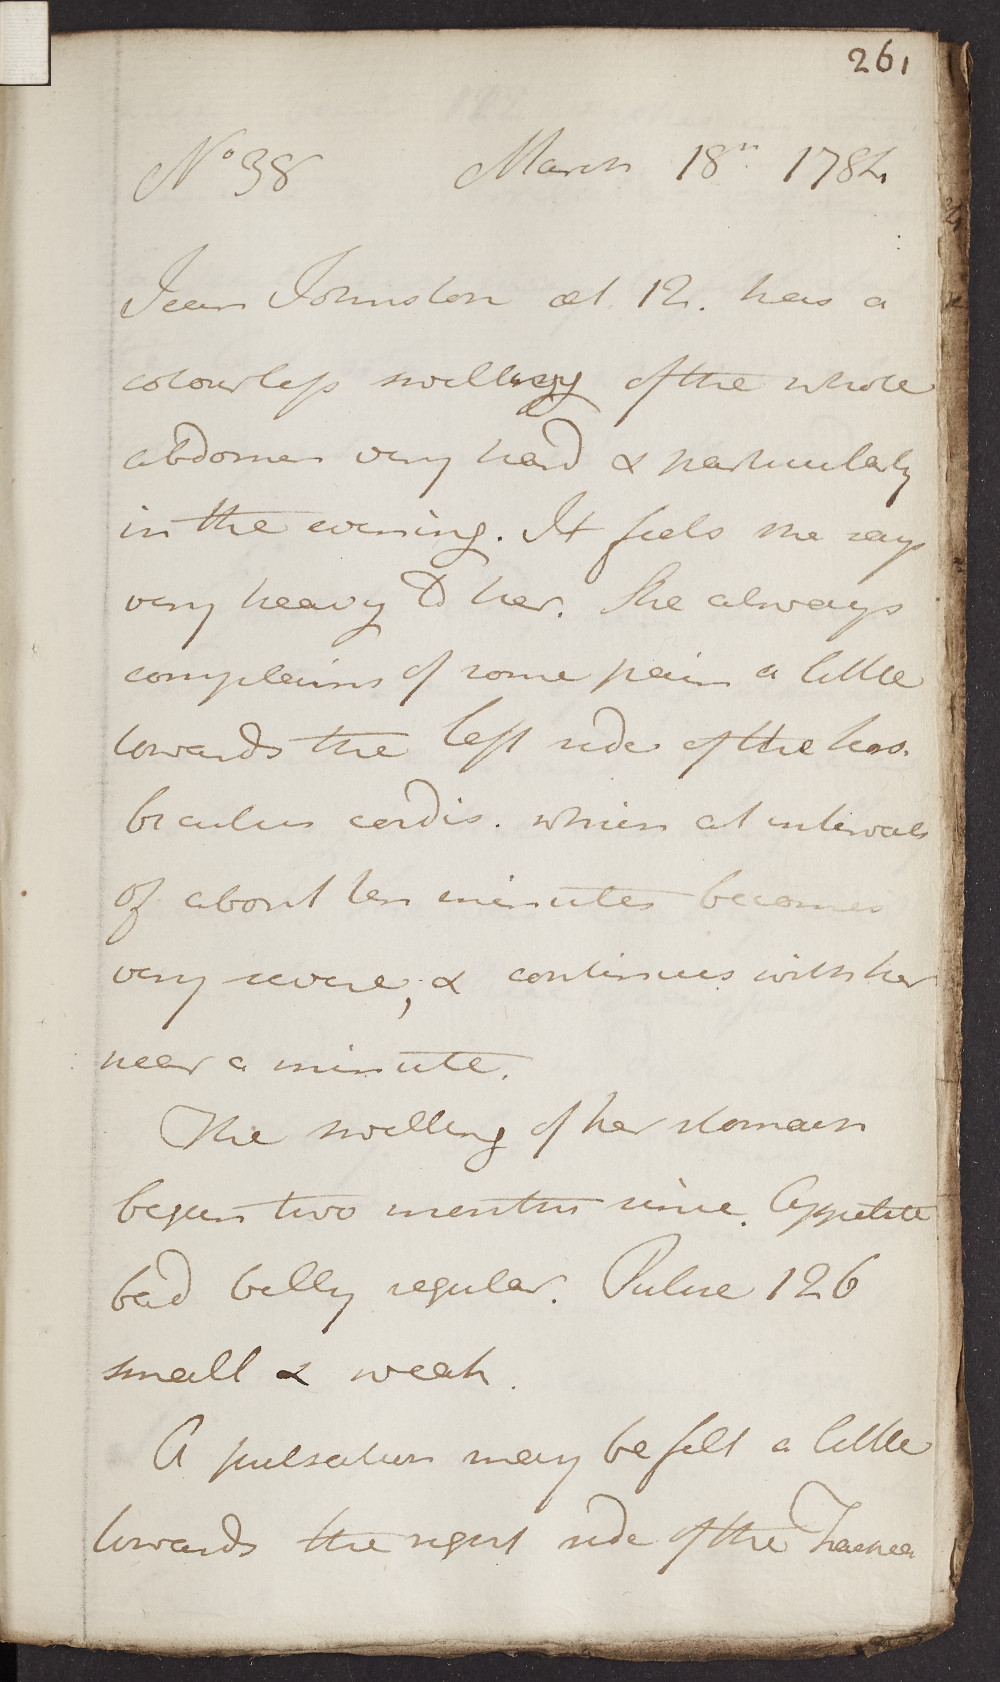 261
No 38 March 18th 1784
Jean Johnston æt. 12. has a
colourless swelling of the whole
abdomen very hard & particularly
in the evening. It feels she says
very heavy to her. She always
complains of some pain a little
towards the left side of the Scro-
biculus cordis. which at intervals
of about ten minutes becomes
very severe, & continues with her
near a minute.
The swelling of her stomach
began two months since. Appetite
bad belly regular. Pulse 126
small & weak.
A pulsation may be felt a little
towards the right side of the Trachea